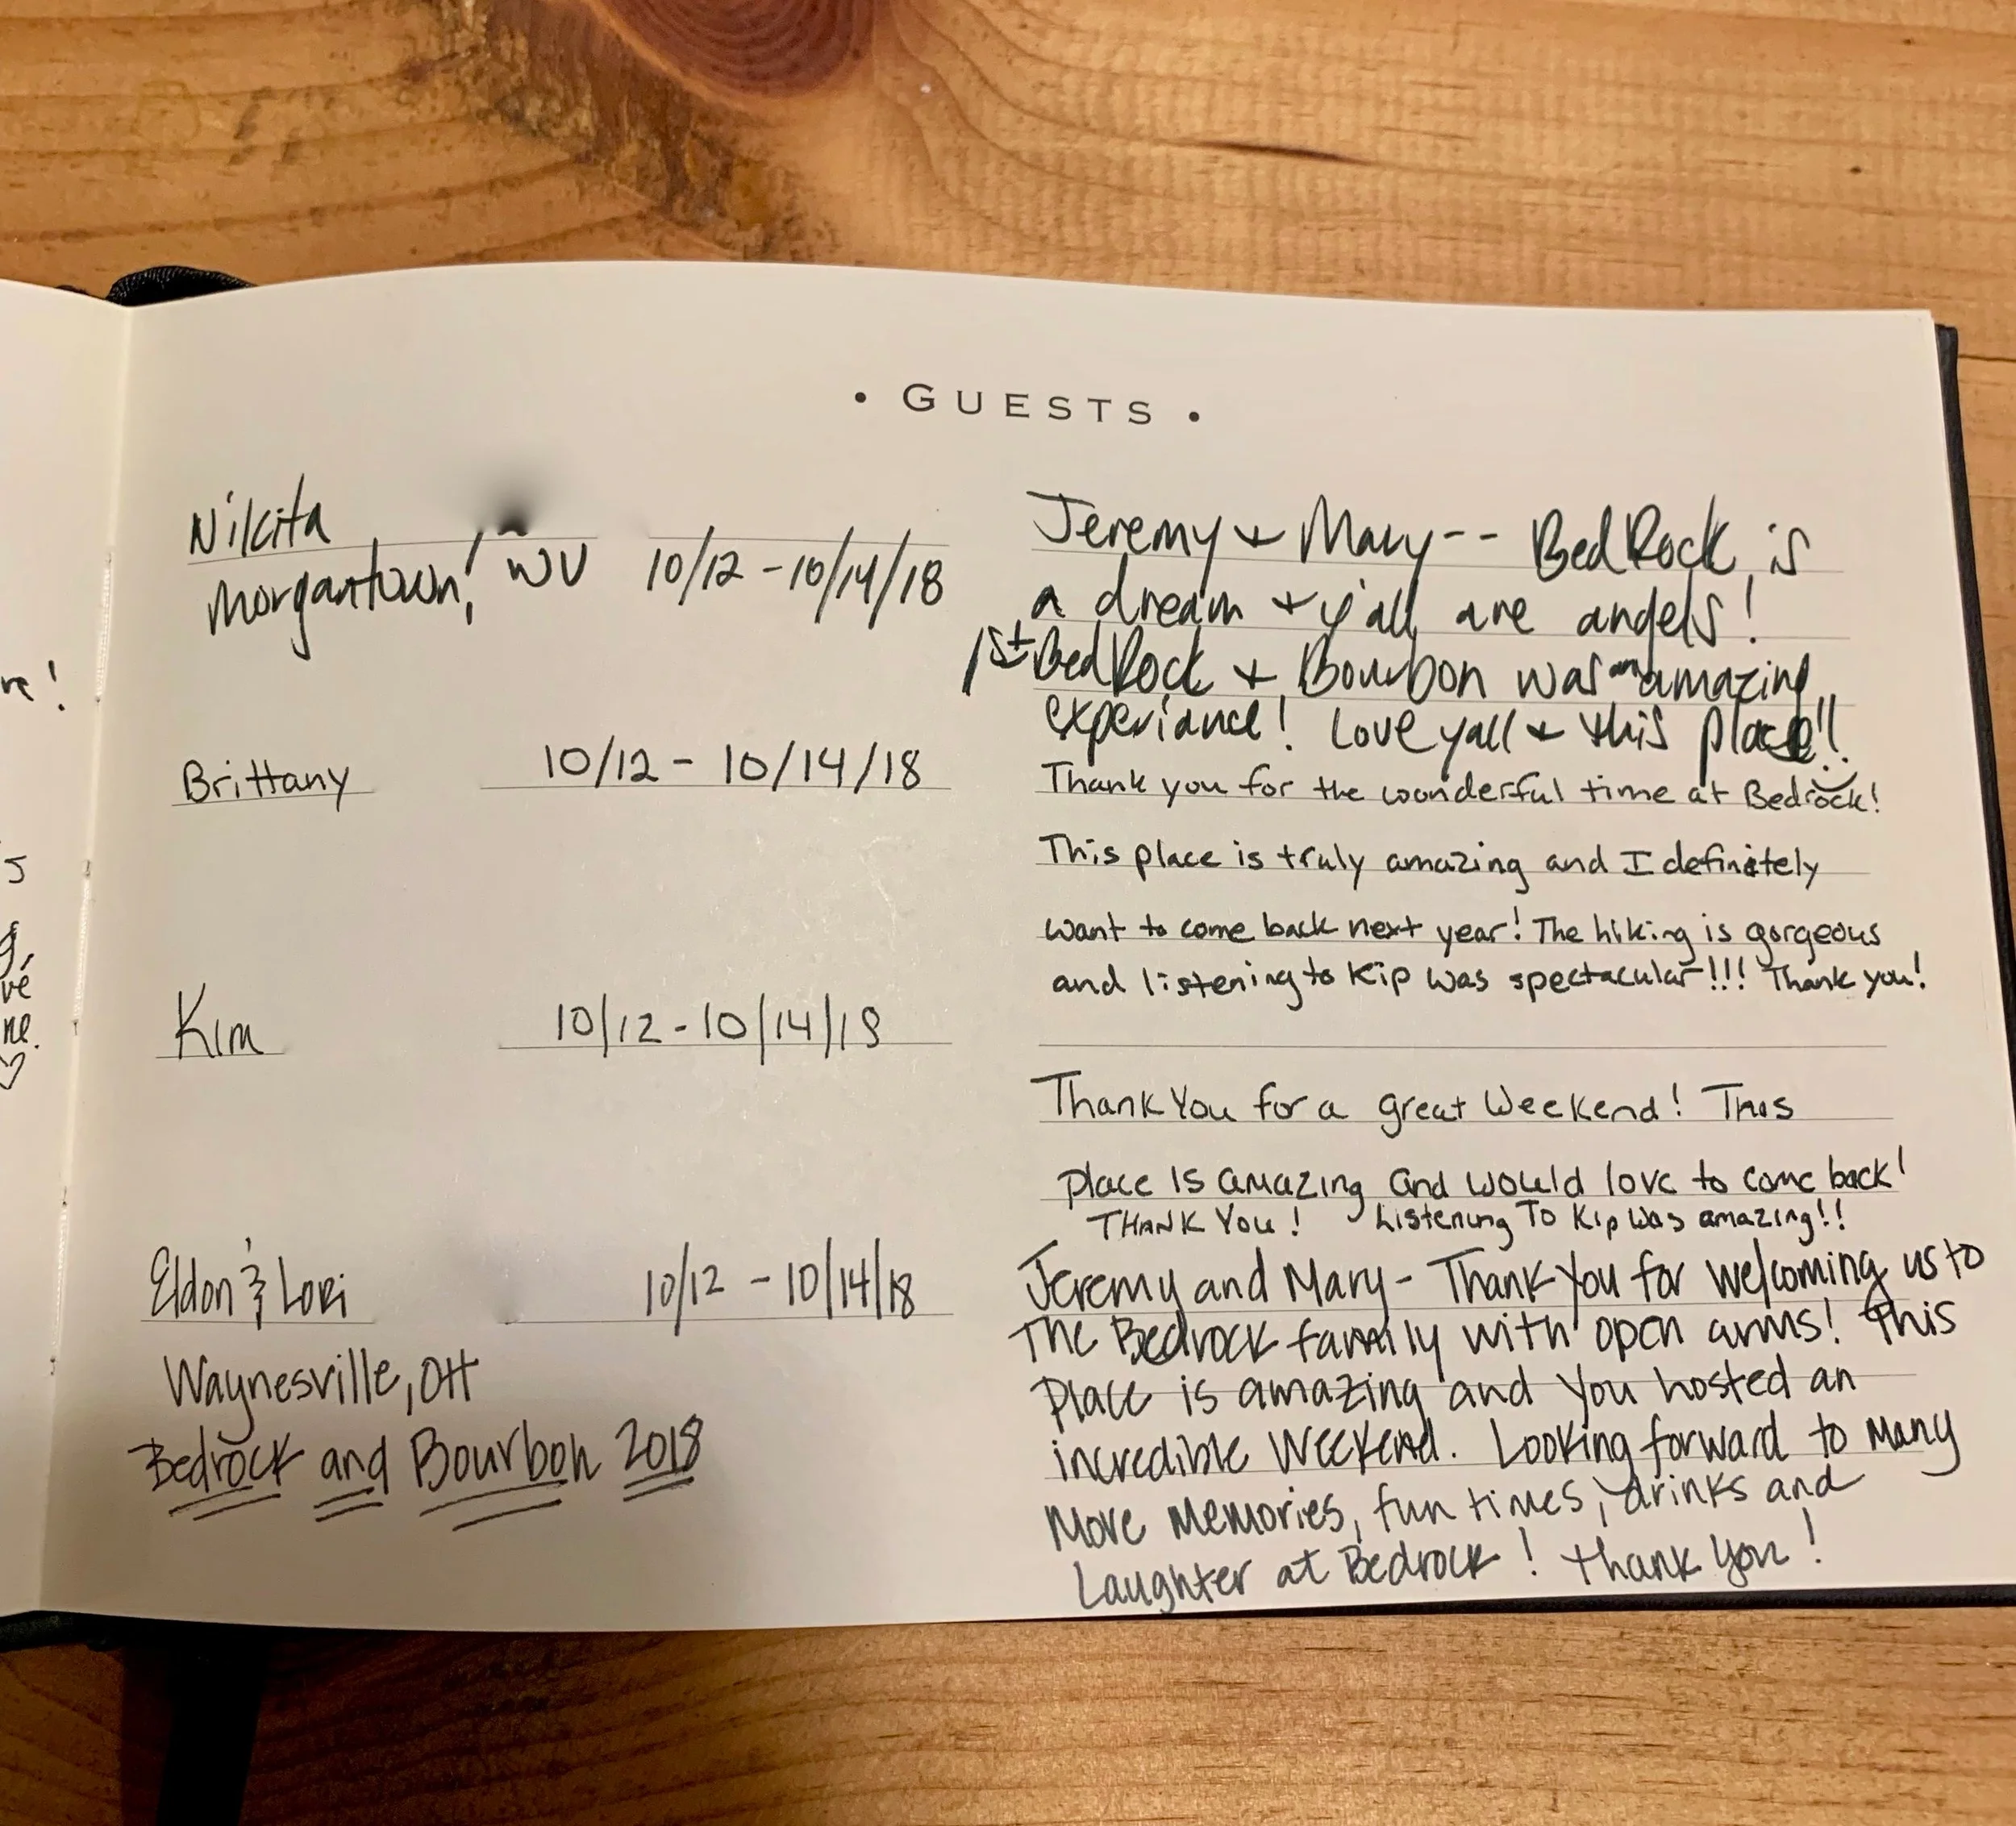 • GUESTS •
Nikita
Morgantown, WV 10/12 - 10/14/18
Jeremy + Mary -- BedRock is
a dream + y'all are angels!
1st BedRock + Bourbon was an amazing
experiance! Love yall + this place!!
Brittany 10/12 - 10/14/18
Thank you for the wonderful time at Bedrock!
This place is truly amazing and I definitely
want to come back next year! The hiking is gorgeous
and listening to Kip was spectacular!!! Thank you!
Kim 10/12 - 10/14/18
Thank You for a great Weekend! This
place is amazing and would love to come back!
THANK YOU! Listening To Kip was amazing!!
Eldon & Lori 10/12 - 10/14/18
Waynesville, OH
Bedrock and Bourbon 2018
Jeremy and Mary - Thank You for welcoming us to
The Bedrock family with open arms! This
Place is amazing and you hosted an
incredible Weekend. Looking forward to Many
More Memories, fun times, drinks and
Laughter at Bedrock! Thank You!